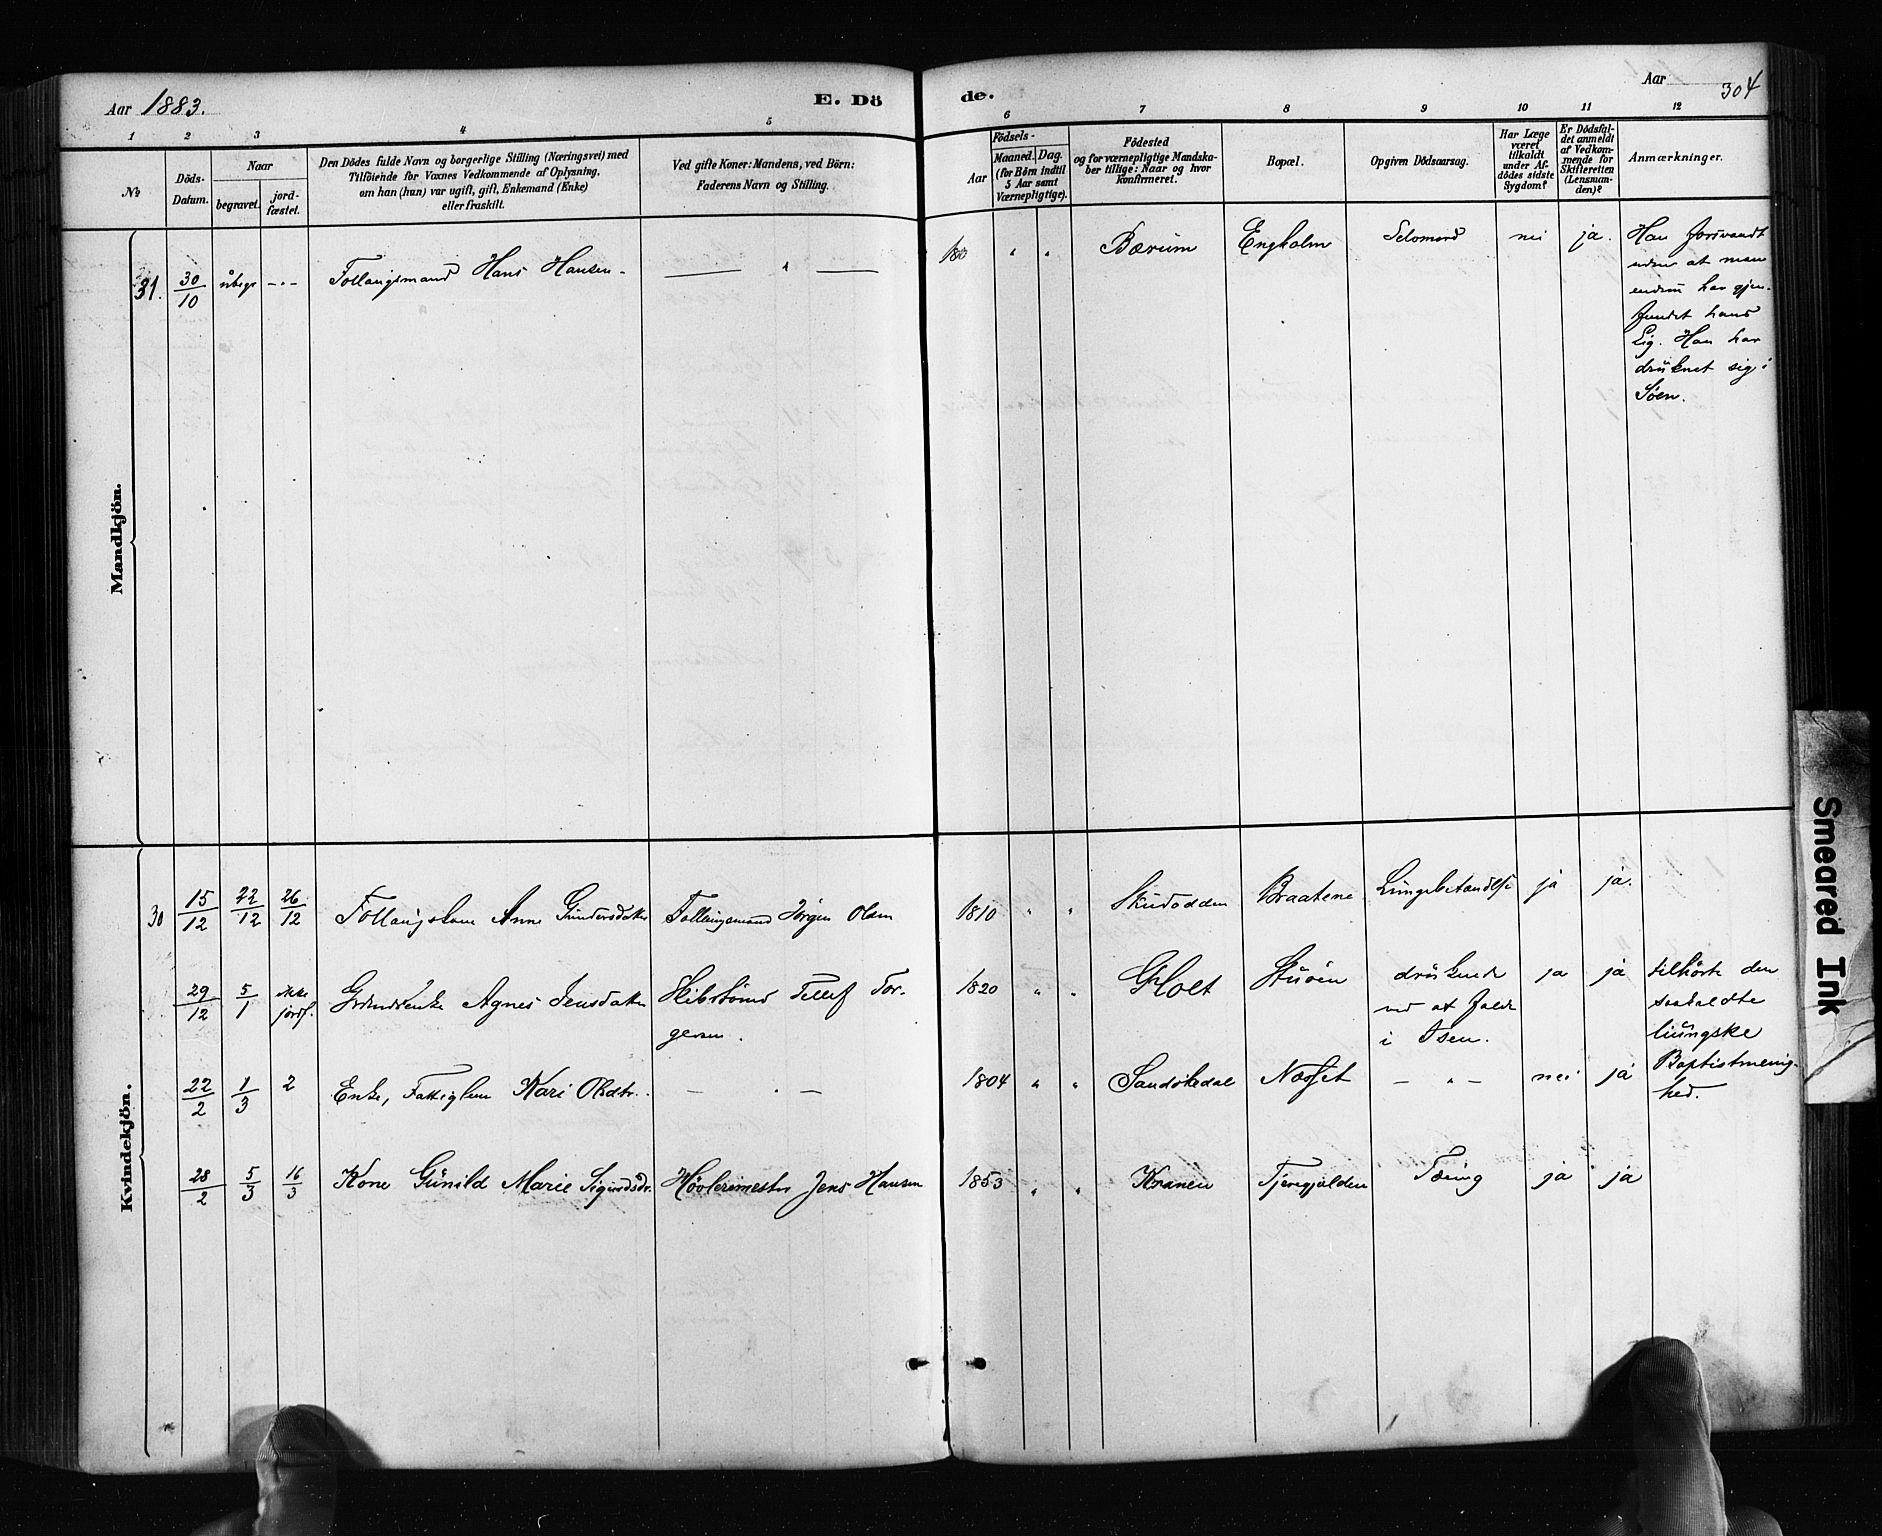 Aar 1883.
E. Dö
de.
Aar
304
1 2 3 4 5 6 7 8 9 10 11 12
No
Döds-
Datum.
Naar
begravet.
jord-
fæstet.
Den Dödes fulde Navn og borgerlige Stilling (Næringsvei) med
Tilföiende for Voxnes Vedkommende af Oplysning,
om han (hun) var ugift, gift, Enkemand (Enke)
eller fraskilt.
Ved gifte Koner: Mandens, ved Börn:
Faderens Navn og Stilling.
Aar
Födsels-
Maaned. Dag.
(for Börn indtil
5 Aar samt
Værnepligtige).
Födested
og for værnepligtige Mandska-
ber tillige: Naar og hvor
Konfirmeret.
Bopæl.
Opgiven Dödsaarsag.
Har Læge
været
tilkaldt
under Af-
dødes sidste
Sygdom?
Er Dödsfal-
det anmeldt
af Vedkom-
mende for
Skifteretten
(Lensman-
den)?
Anmærkninger.
Mandkjön.
31. 30/10 ubegr -"- Hans Hansen - — " — " " Bærum Engholm Selvmord nei ja. Han forsvandt
uden at man
endnu har gjen-
fundet hans
Lig. Han har
druknet sig i
Søen.
Kvindekjön.
30 15/12 22/12 26/12 Anne Gundersdatter Jørgen Olsen 1810 " " Braatene Lungebetændelse ja ja.
29/12 5/1 ikke
jordf.
Agnes Jensdatter Tellef Tor-
gersen.
1820 " " Holt Stuven druknede
ved at falde
i
ja ja tilhörte den
saakaldte
liungske
Baptistmenig-
hed.
22/2 1/3 2 Enke, Fattiglem Kari Olsdtr. — " — 1804 " " Sandøkedal Næsset — " — nei ja
28/2 5/3 16/3 Kone Gunild Marie Sigurdsdr. Høvlermester Jens Hansen 1853 " " Kranen Tjeregjælden Tæring ja ja
Smeared Ink